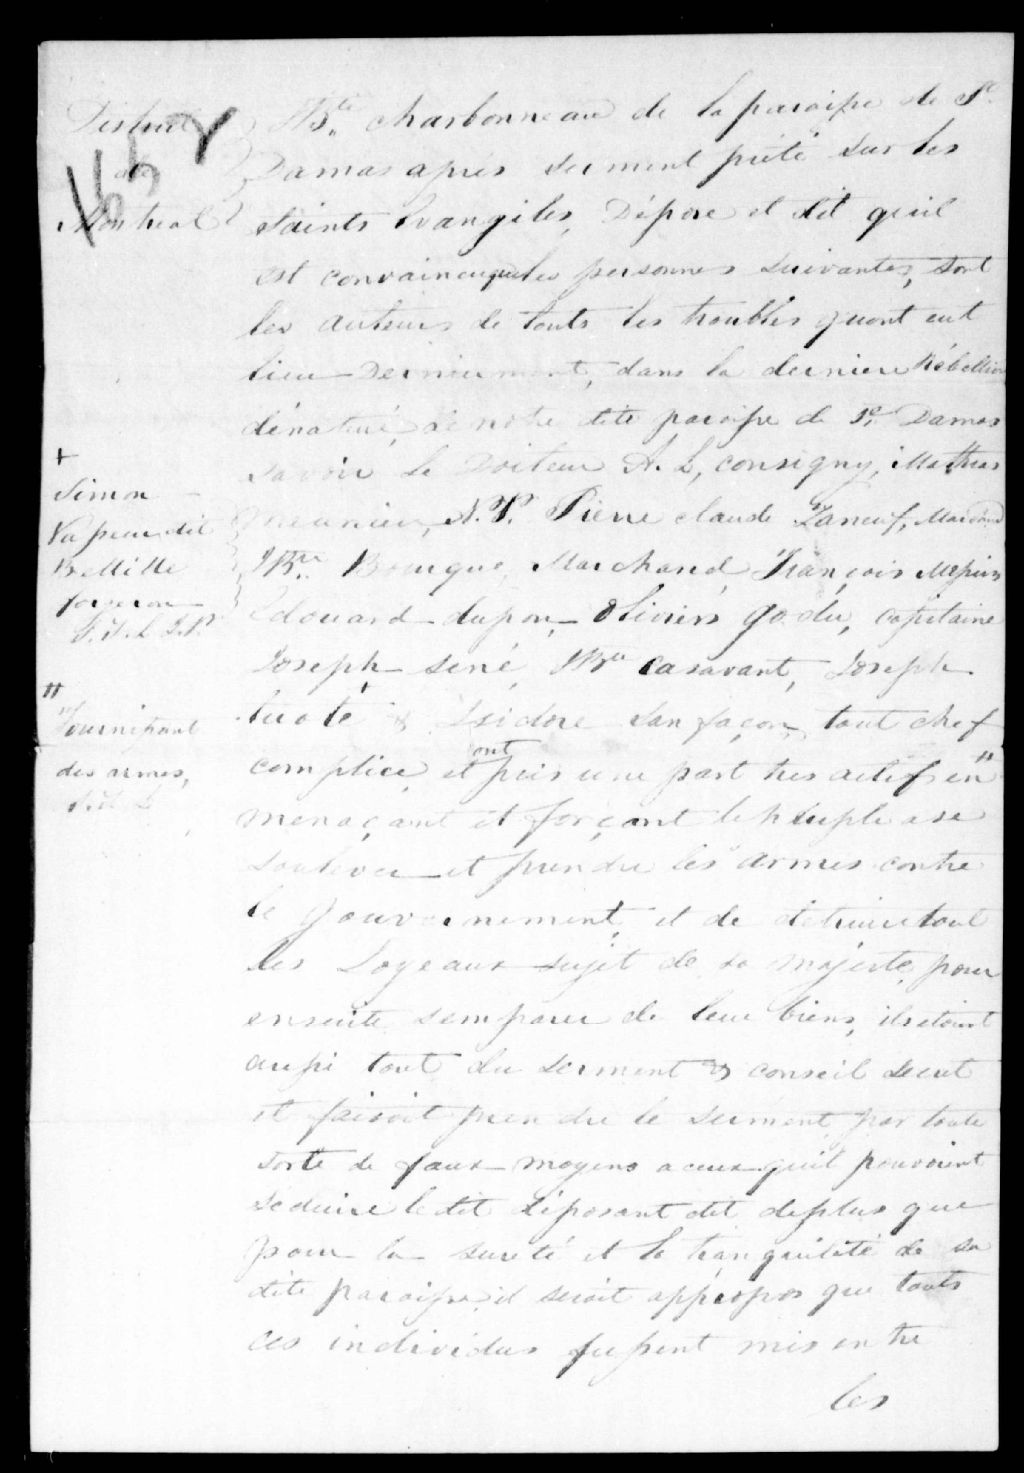 District
de
Montreal
1652
Jbte Charbonneau de la paroisse de St
Damas apres serment prété sur les
Saints Evangiles, Dépose et dit quil
est convaincu que les personnes suivantes, sont
les auteurs de touts les troubles quont eut
lieu Dernierment, dans la derniere Rébellion
dénaturé, de notre dite paroisse de St. Damas
savoir le Docteur A. L, consigny, Mathias
meunier, N.P. Pierre claude Zaneuf, Marchand
JBte Bourque, Marchand, François Messier
Edouard dupon, Oliviers godu, capitaine
Joseph sené, JBte Casavant, Joseph
lusote + & Isidore Sanfaçon, tout chef
complice, et ont pris une part tres actif en #
menaçant et forçant le peuple a se
soulever et prendre les armes contre
le gouvernement, et de détruire tout
les Loyeaux sujet de sa majesté, pour
ensuite semparer de leur biens, ils etoient
aussi tout du serment & conseil secret
et faisoit prendre le serment, par toute
sorte de faux moyens a ceux quil pouvoient
séduire le dit déposant dit deplus que
pour la sureté et la tranquilité de sa
dite paroisse, il seroit appropos que touts
ces individus fussent mis entre
les
+
Simon
Vapeur dit
Bellille
forgeron
F.X.L J.P.
#
Fournissant
des armes,